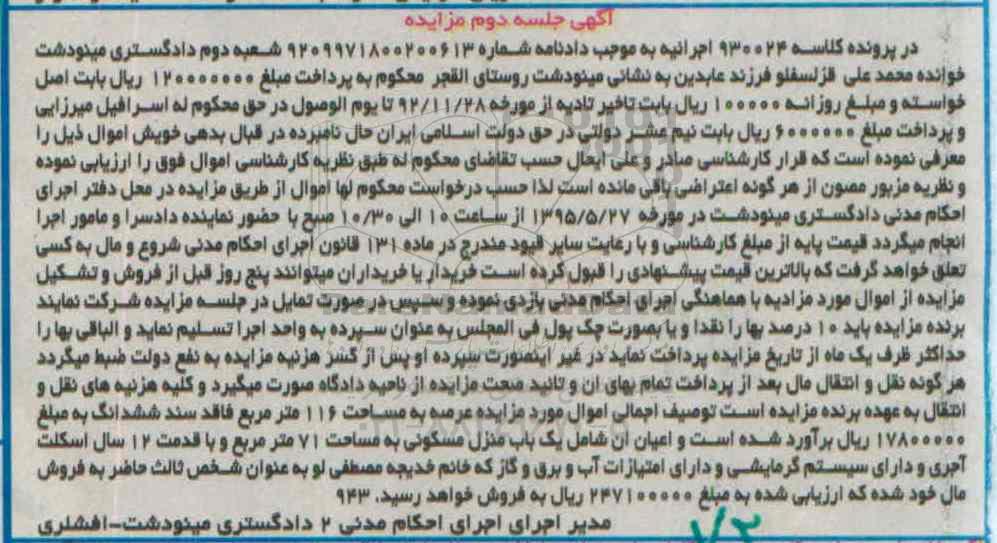 آگهی جلسه دوم مزایده
در پرونده کلاسه ۹۳۰۰۲۴ اجرائیه به موجب دادنامه شماره ۹۲۰۹۹۷۱۸۰۰۲۰۰۶۱۳ شعبه دوم دادگستری مینودشت
خوانده محمد علی قزلسفلو فرزند عابدین به نشانی مینودشت روستای القجر محکوم به پرداخت مبلغ ۱۲۰۰۰۰۰۰۰ ریال بابت اصل
خواسته و مبلغ روزانه ۱۰۰۰۰۰ ریال بابت تاخیر تادیه از مورخه ۹۲/۱۱/۲۸ تا یوم الوصول در حق محکوم له اسرافیل میرزایی
و پرداخت مبلغ ۶۰۰۰۰۰۰ ریال بابت نیم عشر دولتی در حق دولت اسلامی ایران حال نامبرده در قبال بدهی خویش اموال ذیل را
معرفی نموده است که قرار کارشناسی صادر و علی ایحال حسب تقاضای محکوم له طبق نظریه کارشناسی اموال فوق را ارزیابی نموده
و نظریه مزبور مصون از هر گونه اعتراضی باقی مانده است لذا حسب درخواست محکوم لها اموال از طریق مزایده در محل دفتر اجرای
احکام مدنی دادگستری مینودشت در مورخه ۱۳۹۵/۵/۲۷ از ساعت ۱۰ الی ۱۰/۳۰ صبح با حضور نماینده دادسرا و مامور اجرا
انجام میگردد قیمت پایه از مبلغ کارشناسی و با رعایت سایر قیود مندرج در ماده ۱۳۱ قانون اجرای احکام مدنی شروع و مال به کسی
تعلق خواهد گرفت که بالاترین قیمت پیشنهادی را قبول کرده است خریدار یا خریداران میتوانند پنج روز قبل از فروش و تشکیل
مزایده از اموال مورد مزادیه با هماهنگی اجرای احکام مدنی بازدی نموده و سپس در صورت تمایل در جلسه مزایده شرکت نمایند
برنده مزایده باید ۱۰ درصد بها را نقدا و یا بصورت چک پول فی المجلس به عنوان سپرده به واحد اجرا تسلیم نماید و الباقی بها را
حداکثر ظرف یک ماه از تاریخ مزایده پرداخت نماید در غیر اینصورت سپرده او پس از کسر هزینه مزایده به نفع دولت ضبط میگردد
هر گونه نقل و انتقال مال بعد از پرداخت تمام بهای ان و تائید صحت مزایده از ناحیه دادگاه صورت میگیرد و کلیه هزنیه های نقل و
انتقال به عهده برنده مزایده است توصیف اجمالی اموال مورد مزایده عرصه به مساحت ۱۱۶ متر مربع فاقد سند ششدانگ به مبلغ
۱۷۸۰۰۰۰۰ ریال برآورد شده است و اعیان ان شامل یک باب منزل مسکونی به مساحت ۷۱ متر مربع و با قدمت ۱۲ سال اسکلت
آجری و دارای سیستم گرمایشی و دارای امتیازات آب و برق و گاز که خانم خدیجه مصطفی لو به عنوان شخص ثالث حاضر به فروش
مال خود شده که ارزیابی شده به مبلغ ۲۴۷۱۰۰۰۰۰ ریال به فروش خواهد رسید. ۹۴۳
مدیر اجرای اجرای احکام مدنی ۲ دادگستری مینودشت-افشلری
۱/۳